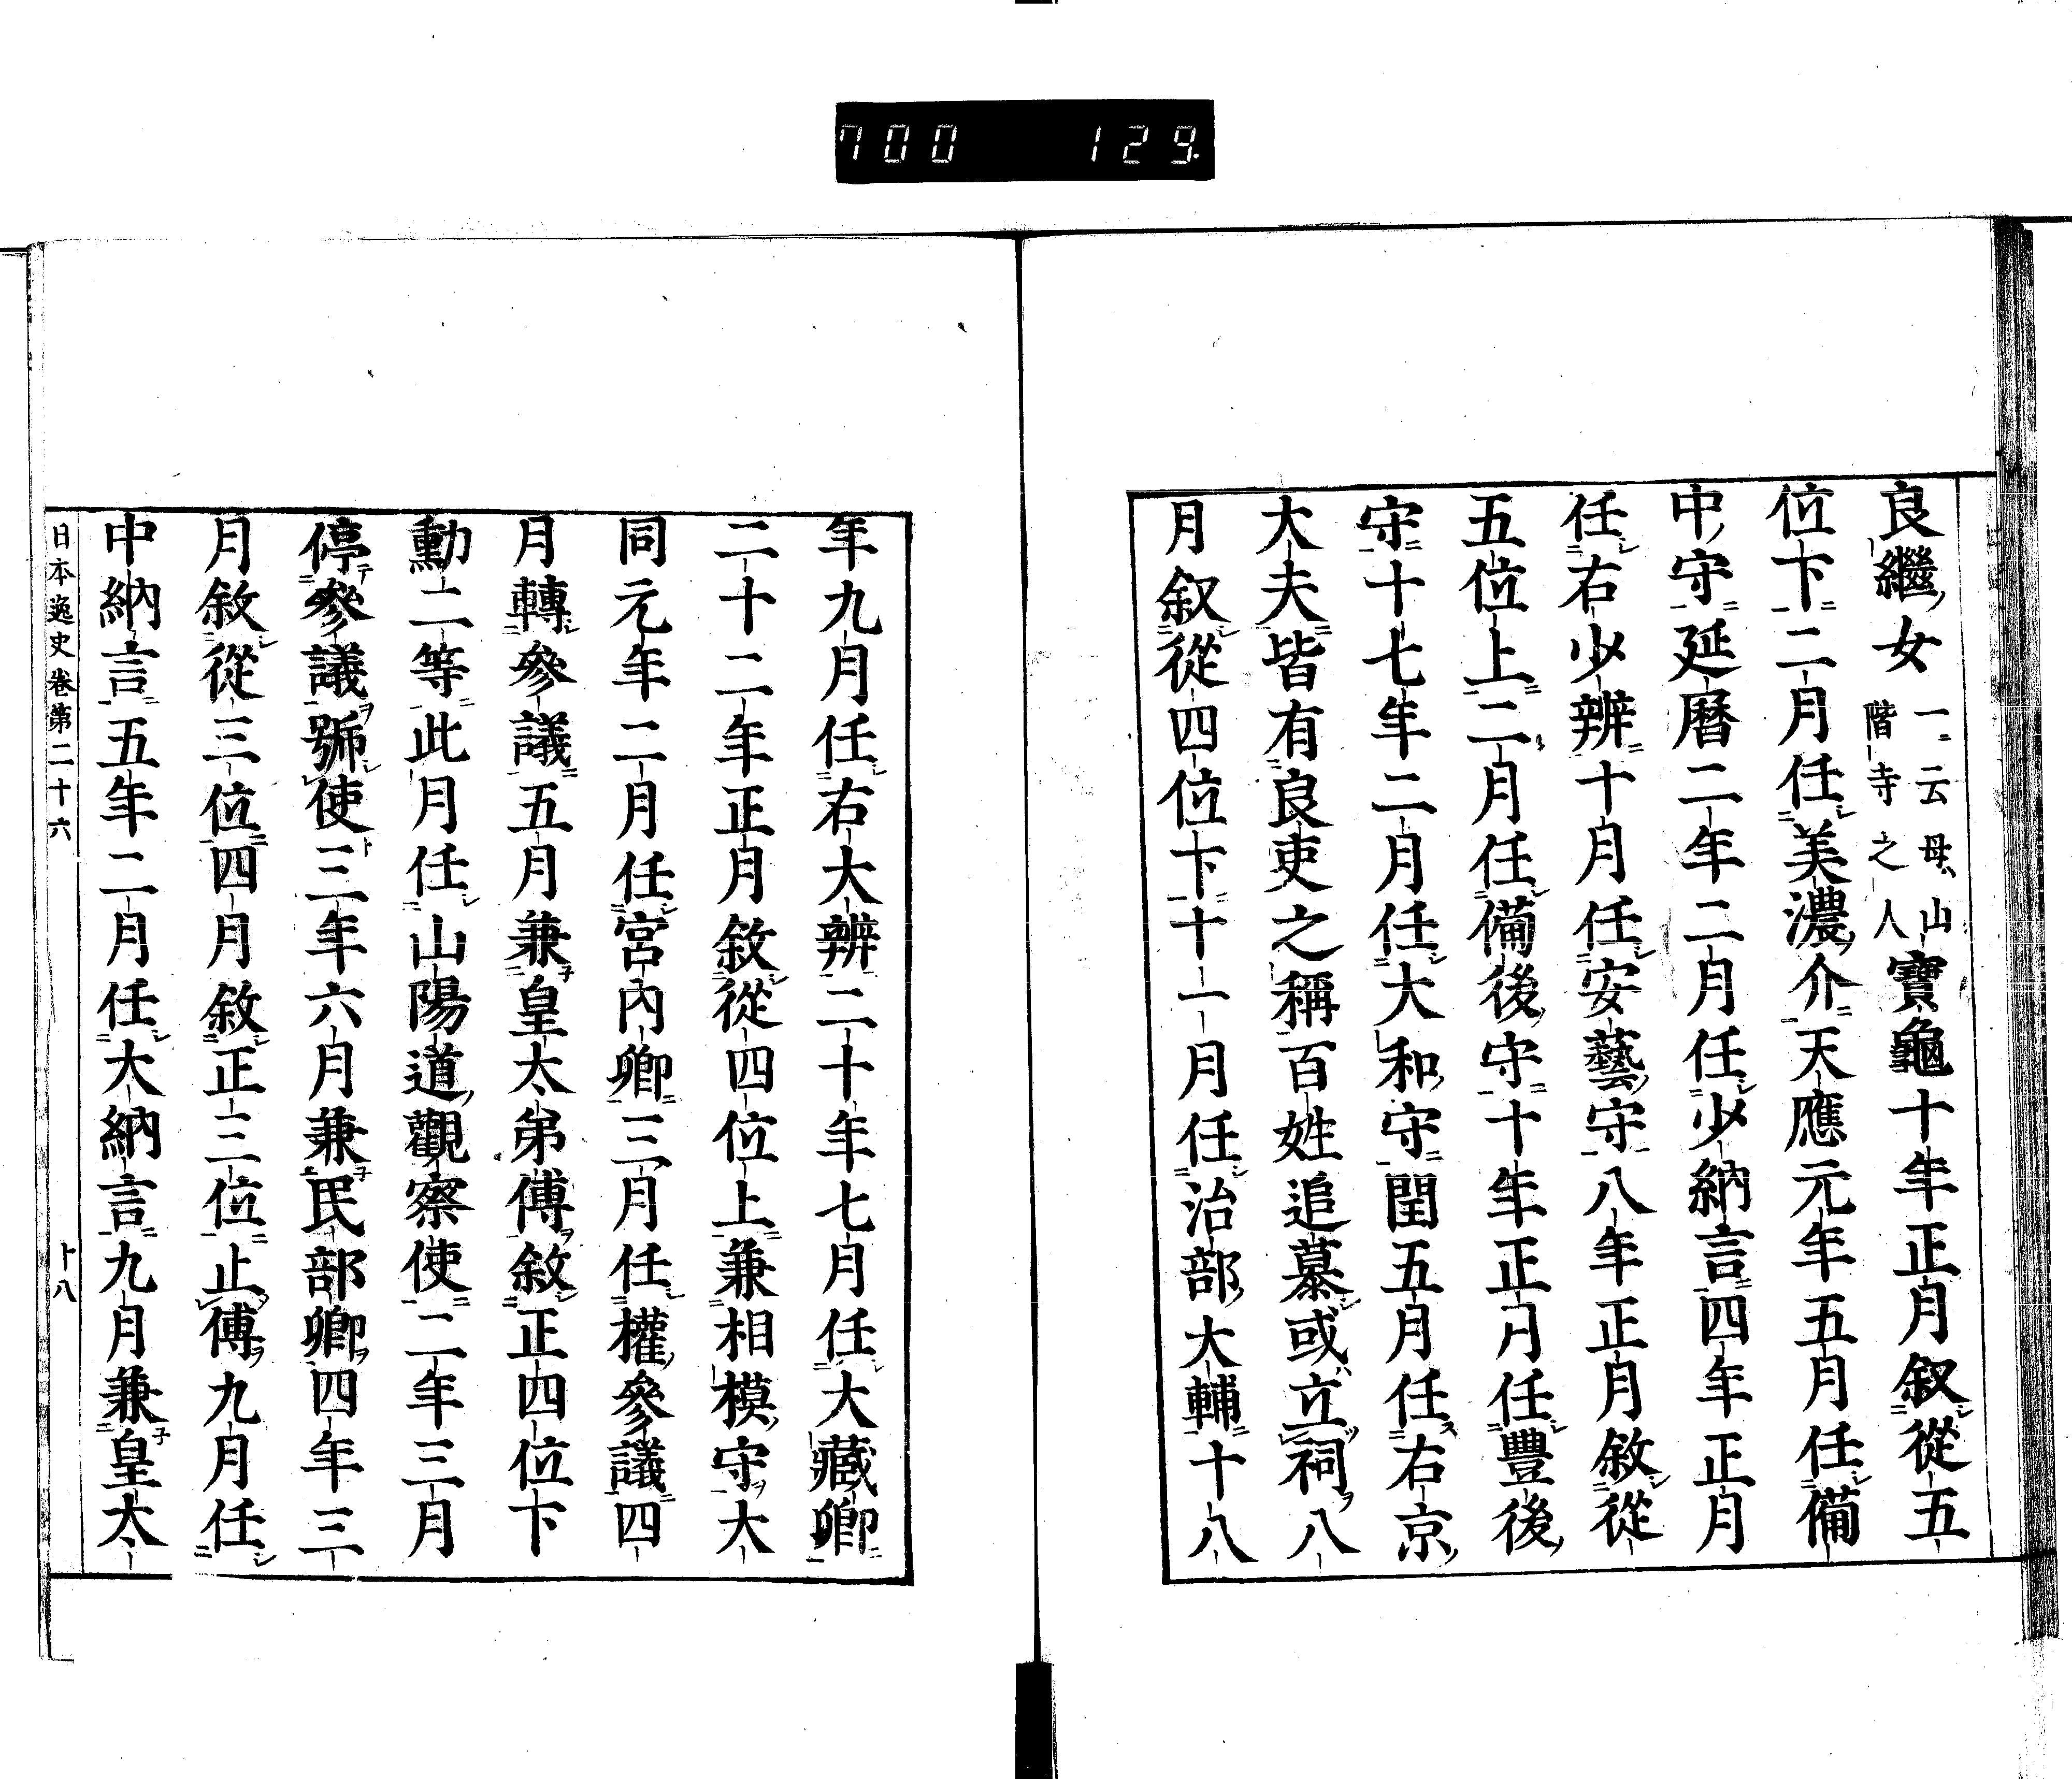 700 129
良繼女一云母山階寺之人寶龜十年正月叙從五
位下二月任美濃介天應元年五月任備
中守延曆二年二月任少納言四年正月
任右少辨十月任安藝守八年正月敘從
五位上二月任備後守十年正月任豐後
守十七年二月任大和守閏五月任右京
大夫皆有良吏之稱百姓追慕或立祠八
月叙從四位下十一月任治部大輔十八
年九月任右大辨二十年七月任大藏卿
二十二年正月敘從四位上兼相模守大
同元年二月任宮內卿三月任權參議四
月轉參議五月兼皇太弟傅敘正四位下
勳二等此月任山陽道觀察使二年三月
停參議號使三年六月兼民部卿四年三
月敘從三位四月敘正三位止傅九月任
中納言五年二月任大納言九月兼皇太
日本逸史卷第二十六 十八